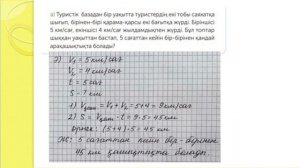 а) Туристік базадан бір уақытта туристердің екі тобы саяхатқа
шығып, бірінен-бірі қарама-қарсы екі бағытқа жүрді. Біріншісі
5 км/сағ, екіншісі 4 км/сағ жылдамдықпен жүрді. Бұл топтар
шыққан уақыттан бастап, 5 сағаттан кейін бір-бірінен қандай
арақашықтықта болады?
V₁ = 5 км/сағ
V₂ = 4 км/сағ
t = 5 сағ
S - ? км
1) V = V₁ + V₂ = 5+4 = 9 км/сағ
2) S = V · t = 9·5 = 45 км
Өрнек: (5+4)·5 = 45 км
Ж: 5 сағаттан кейін бір-бірінен
45 км қашықтықта болады.